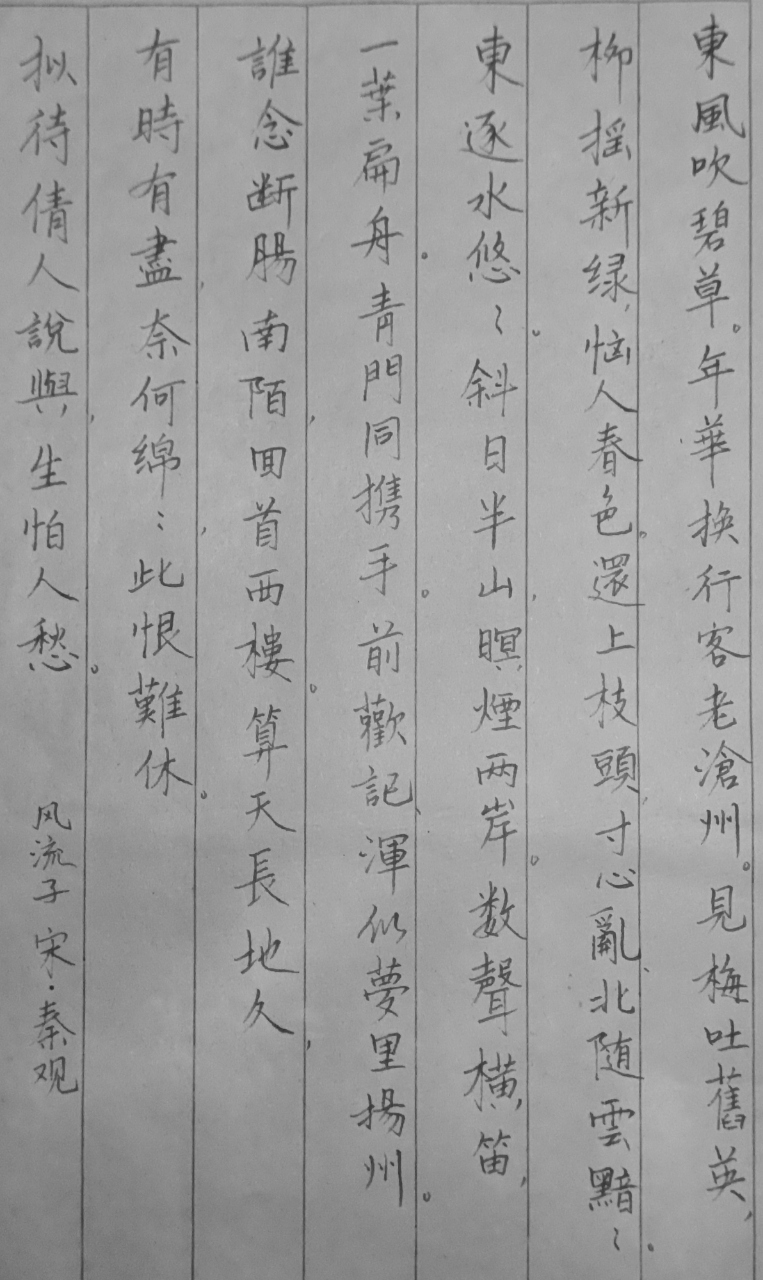 東風吹碧草。年華換行客老滄州。見梅吐舊英，
柳摇新绿，恼人春色。還上枝頭，寸心亂、北随雲黯〻。
東逐水悠〻。斜日半山，暝煙两岸。数聲横笛，
一葉扁舟。青門同携手。前歡記、渾似夢里揚州。
誰念断腸南陌，回首西樓。算天長地久，
有時有盡，奈何綿〻，此恨難休。
拟待倩人說與，生怕人愁。
风流子 宋·秦观